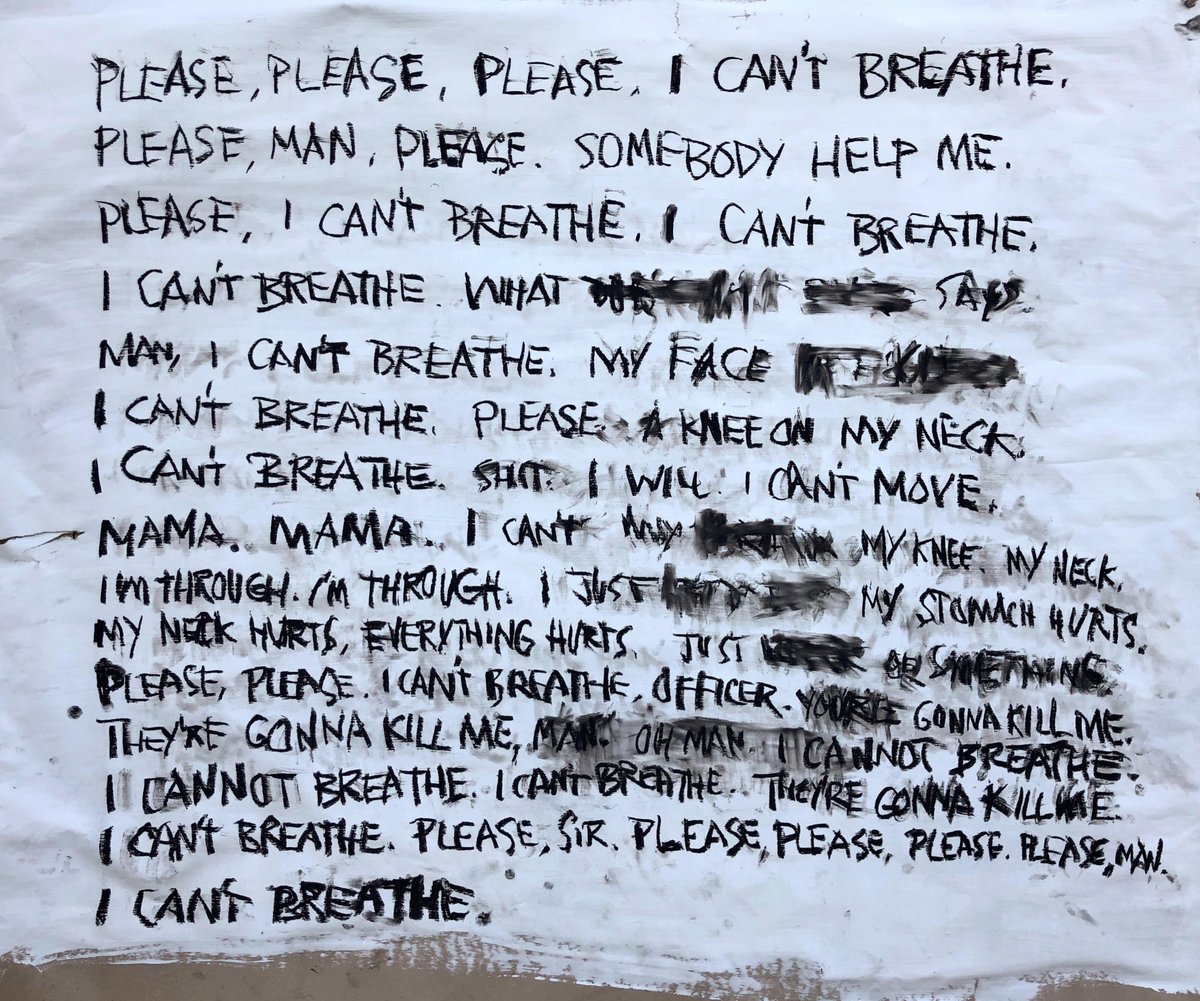 PLEASE, PLEASE, PLEASE, I CAN'T BREATHE.
PLEASE, MAN, PLEASE. SOMEBODY HELP ME.
PLEASE, I CAN'T BREATHE. I CAN'T BREATHE.
I CAN'T BREATHE. WHAT SAYS
MAN, I CAN'T BREATHE. MY FACE
I CAN'T BREATHE. PLEASE A KNEE ON MY NECK.
I CAN'T BREATHE. SHIT. I WILL. I CAN'T MOVE.
MAMA. MAMA. I CAN'T MY KNEE. MY NECK.
I'M THROUGH. I'M THROUGH. I JUST MY STOMACH HURTS.
MY NECK HURTS, EVERYTHING HURTS. JUST SOMETHING.
PLEASE, PLEASE. I CAN'T BREATHE, OFFICER. YOU'RE GONNA KILL ME.
THEY'RE GONNA KILL ME, MAN. OH MAN. I CANNOT BREATHE.
I CANNOT BREATHE. I CAN'T BREATHE. THEY'RE GONNA KILL ME.
I CAN'T BREATHE. PLEASE, SIR. PLEASE, PLEASE, PLEASE. PLEASE, MAN.
I CAN'T BREATHE.